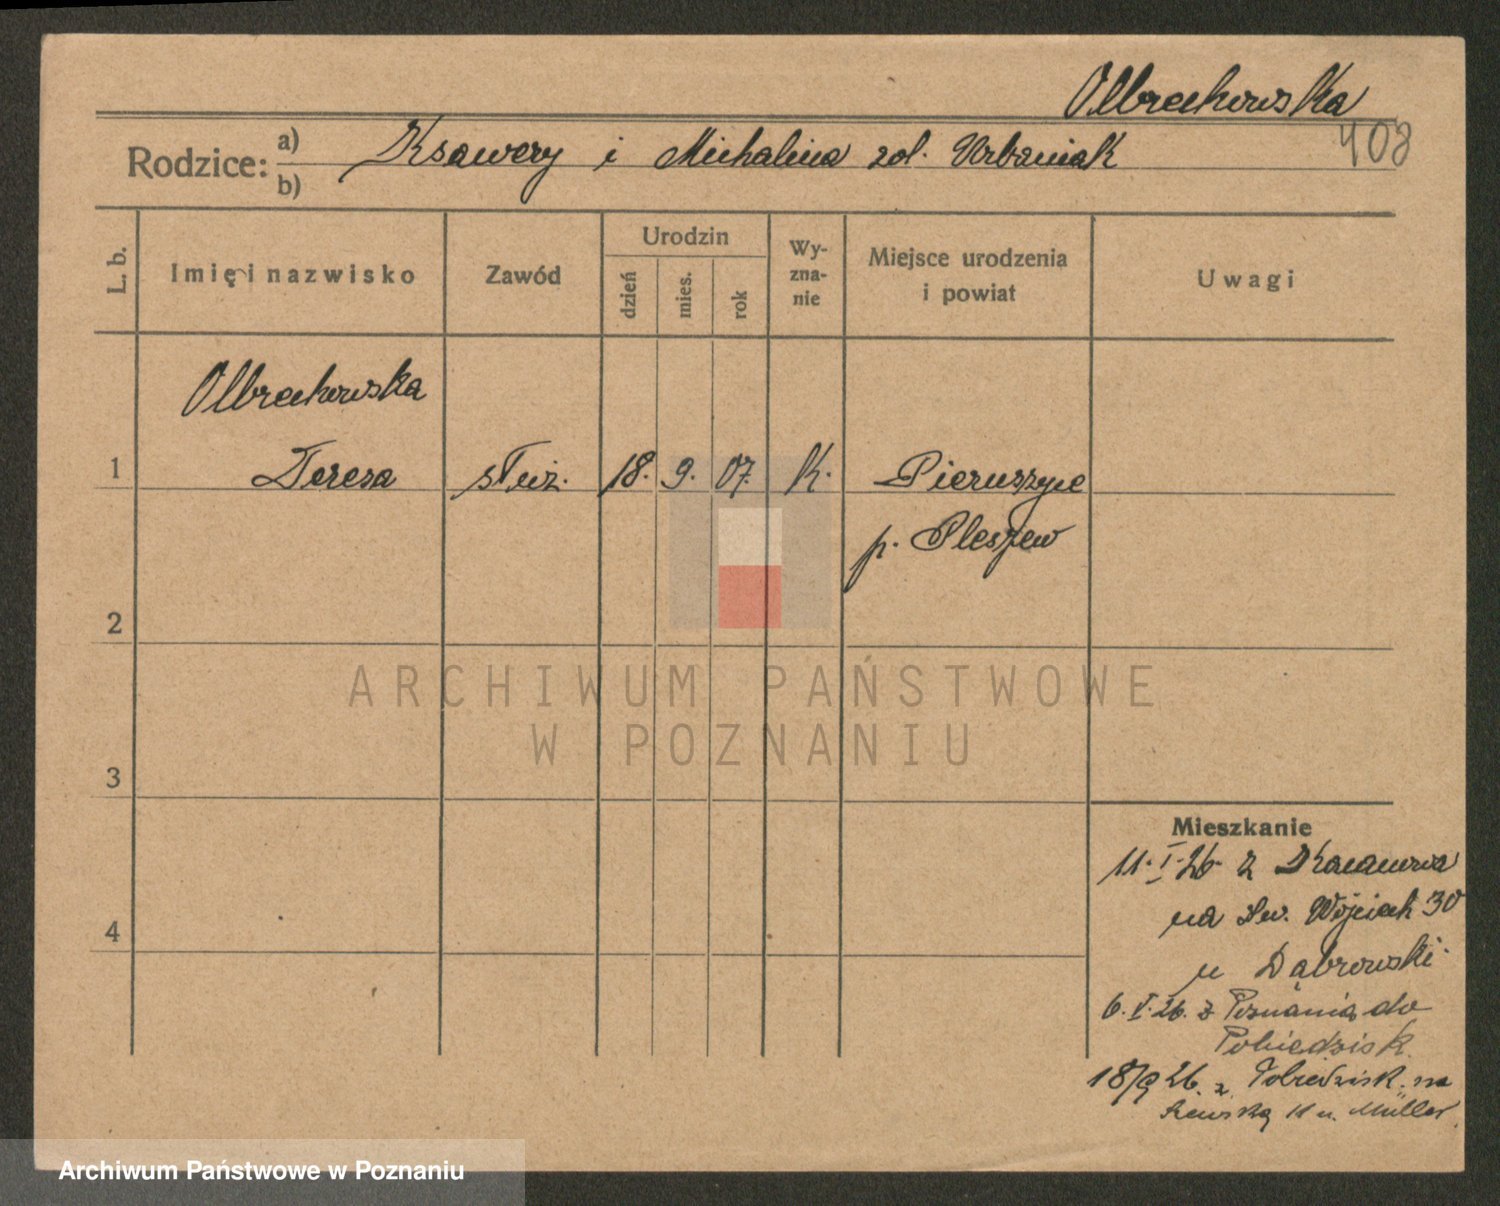 Olbrechowska
408
Rodzice: a) b)
Ksawery i Michalina zol. Urbaniak
L. b.
Imię i nazwisko
Zawód
Urodzin
dzień
mies.
rok
Wy-
zna-
nie
Miejsce urodzenia
i powiat
Uwagi
Olbrechowska
1 Teresa służ. 18. 9. 07. k. Pieruszyce
p. Pleszew
2
3
4
ARCHIWUM PAŃSTWOWE
W POZNANIU
Mieszkanie
11. I. 26 z
na Św. Wojciech 30
u Dąbrowski.
6. V. 26. z Poznania do
Pobiedzisk.
18/9 26. z Pobiedzisk. na
11 u. Müller.
Archiwum Państwowe w Poznaniu